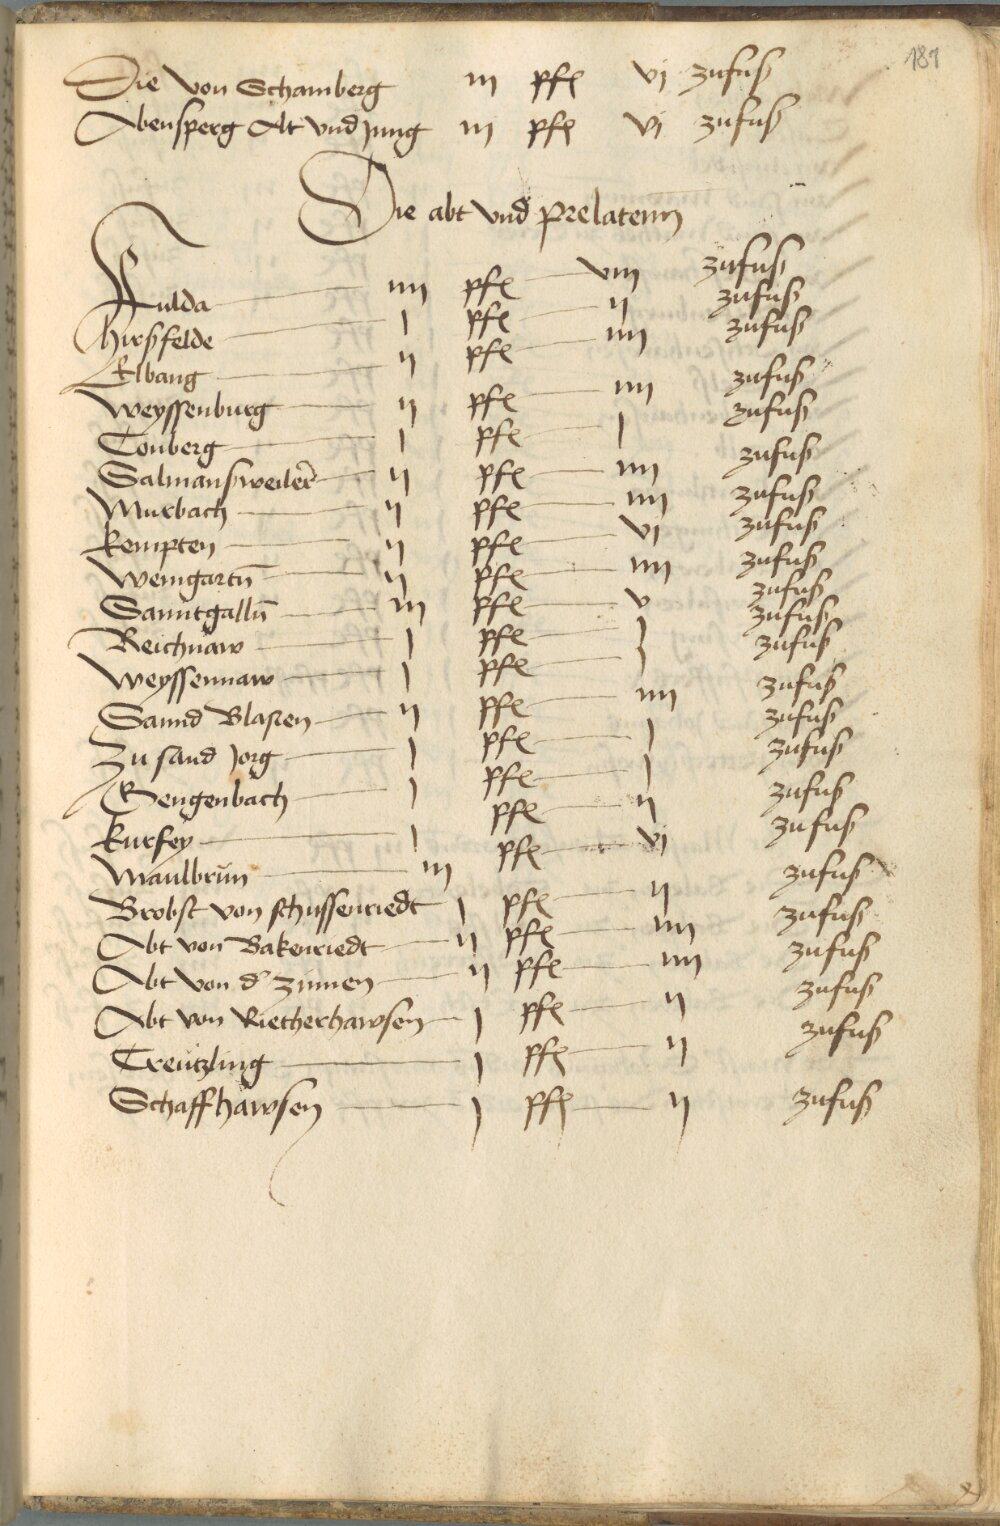 181
Die von Schamberg iij pfe vj zufuß
Abensperg Alt vnd Jung iij pfe vj zufuß
Die abt vnd prelatenn
Fulda iiij pfe viij zufuß
hirßfelde j pfe ij zufuß
Elbang ij pfe iiij zufuß
Weyssenburg ij pfe iiij zufuß
Conberg j pfe j zufuß
Salmanßweiler ij pfe iiij zufuß
Murbach ij pfe iiij zufuß
kempten ij pfe vj zufuß
Weingartn̄ ij pfe iiij zufuß
Sanntgalln̄ iij pfe v zufuß
Reichnaw j pfe j zufuß
Weyssennaw j pfe j zufuß
Sannd Blasien ij pfe iiij zufuß
Zu sand Jorg j pfe j zufuß
Gengenbach j pfe j zufuß
kurfey j pfe ij zufuß
Maulbrun iij pfe vj zufuß
Brobst von schussenriedt j pfe ij zufuß
Abt von Bakenriedt ij pfe iiij zufuß
Abt von d' zinnen ij pfe iiij zufuß
Abt von Rietherhawsen j pfe ij zufuß
Creutzling j pfe ij zufuß
Schaffhawsen j pfe ij zufuß